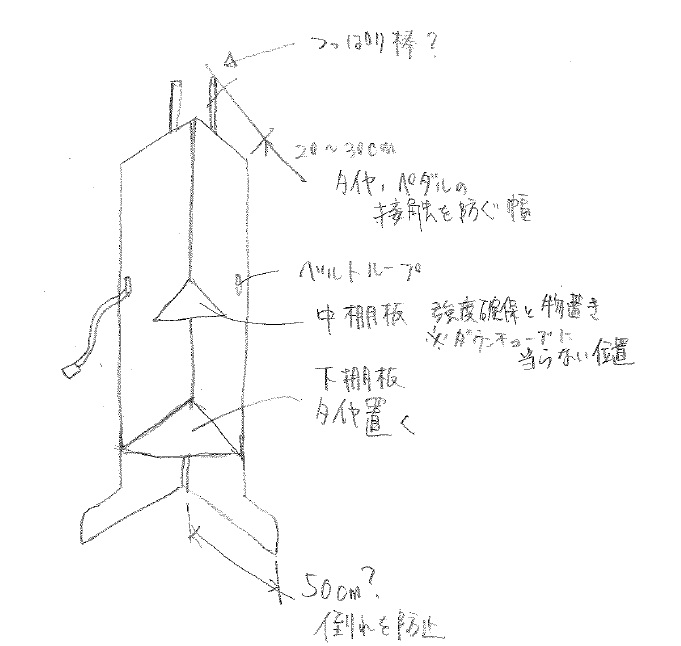 つっぱり棒?
20~30cm
タイヤ、ペダルの
接触を防ぐ幅
ベルトループ
中棚板 強度確保と物置き
※ダウンチューブに
当らない位置
下棚板
タイヤ置く
50cm?
倒れを防止